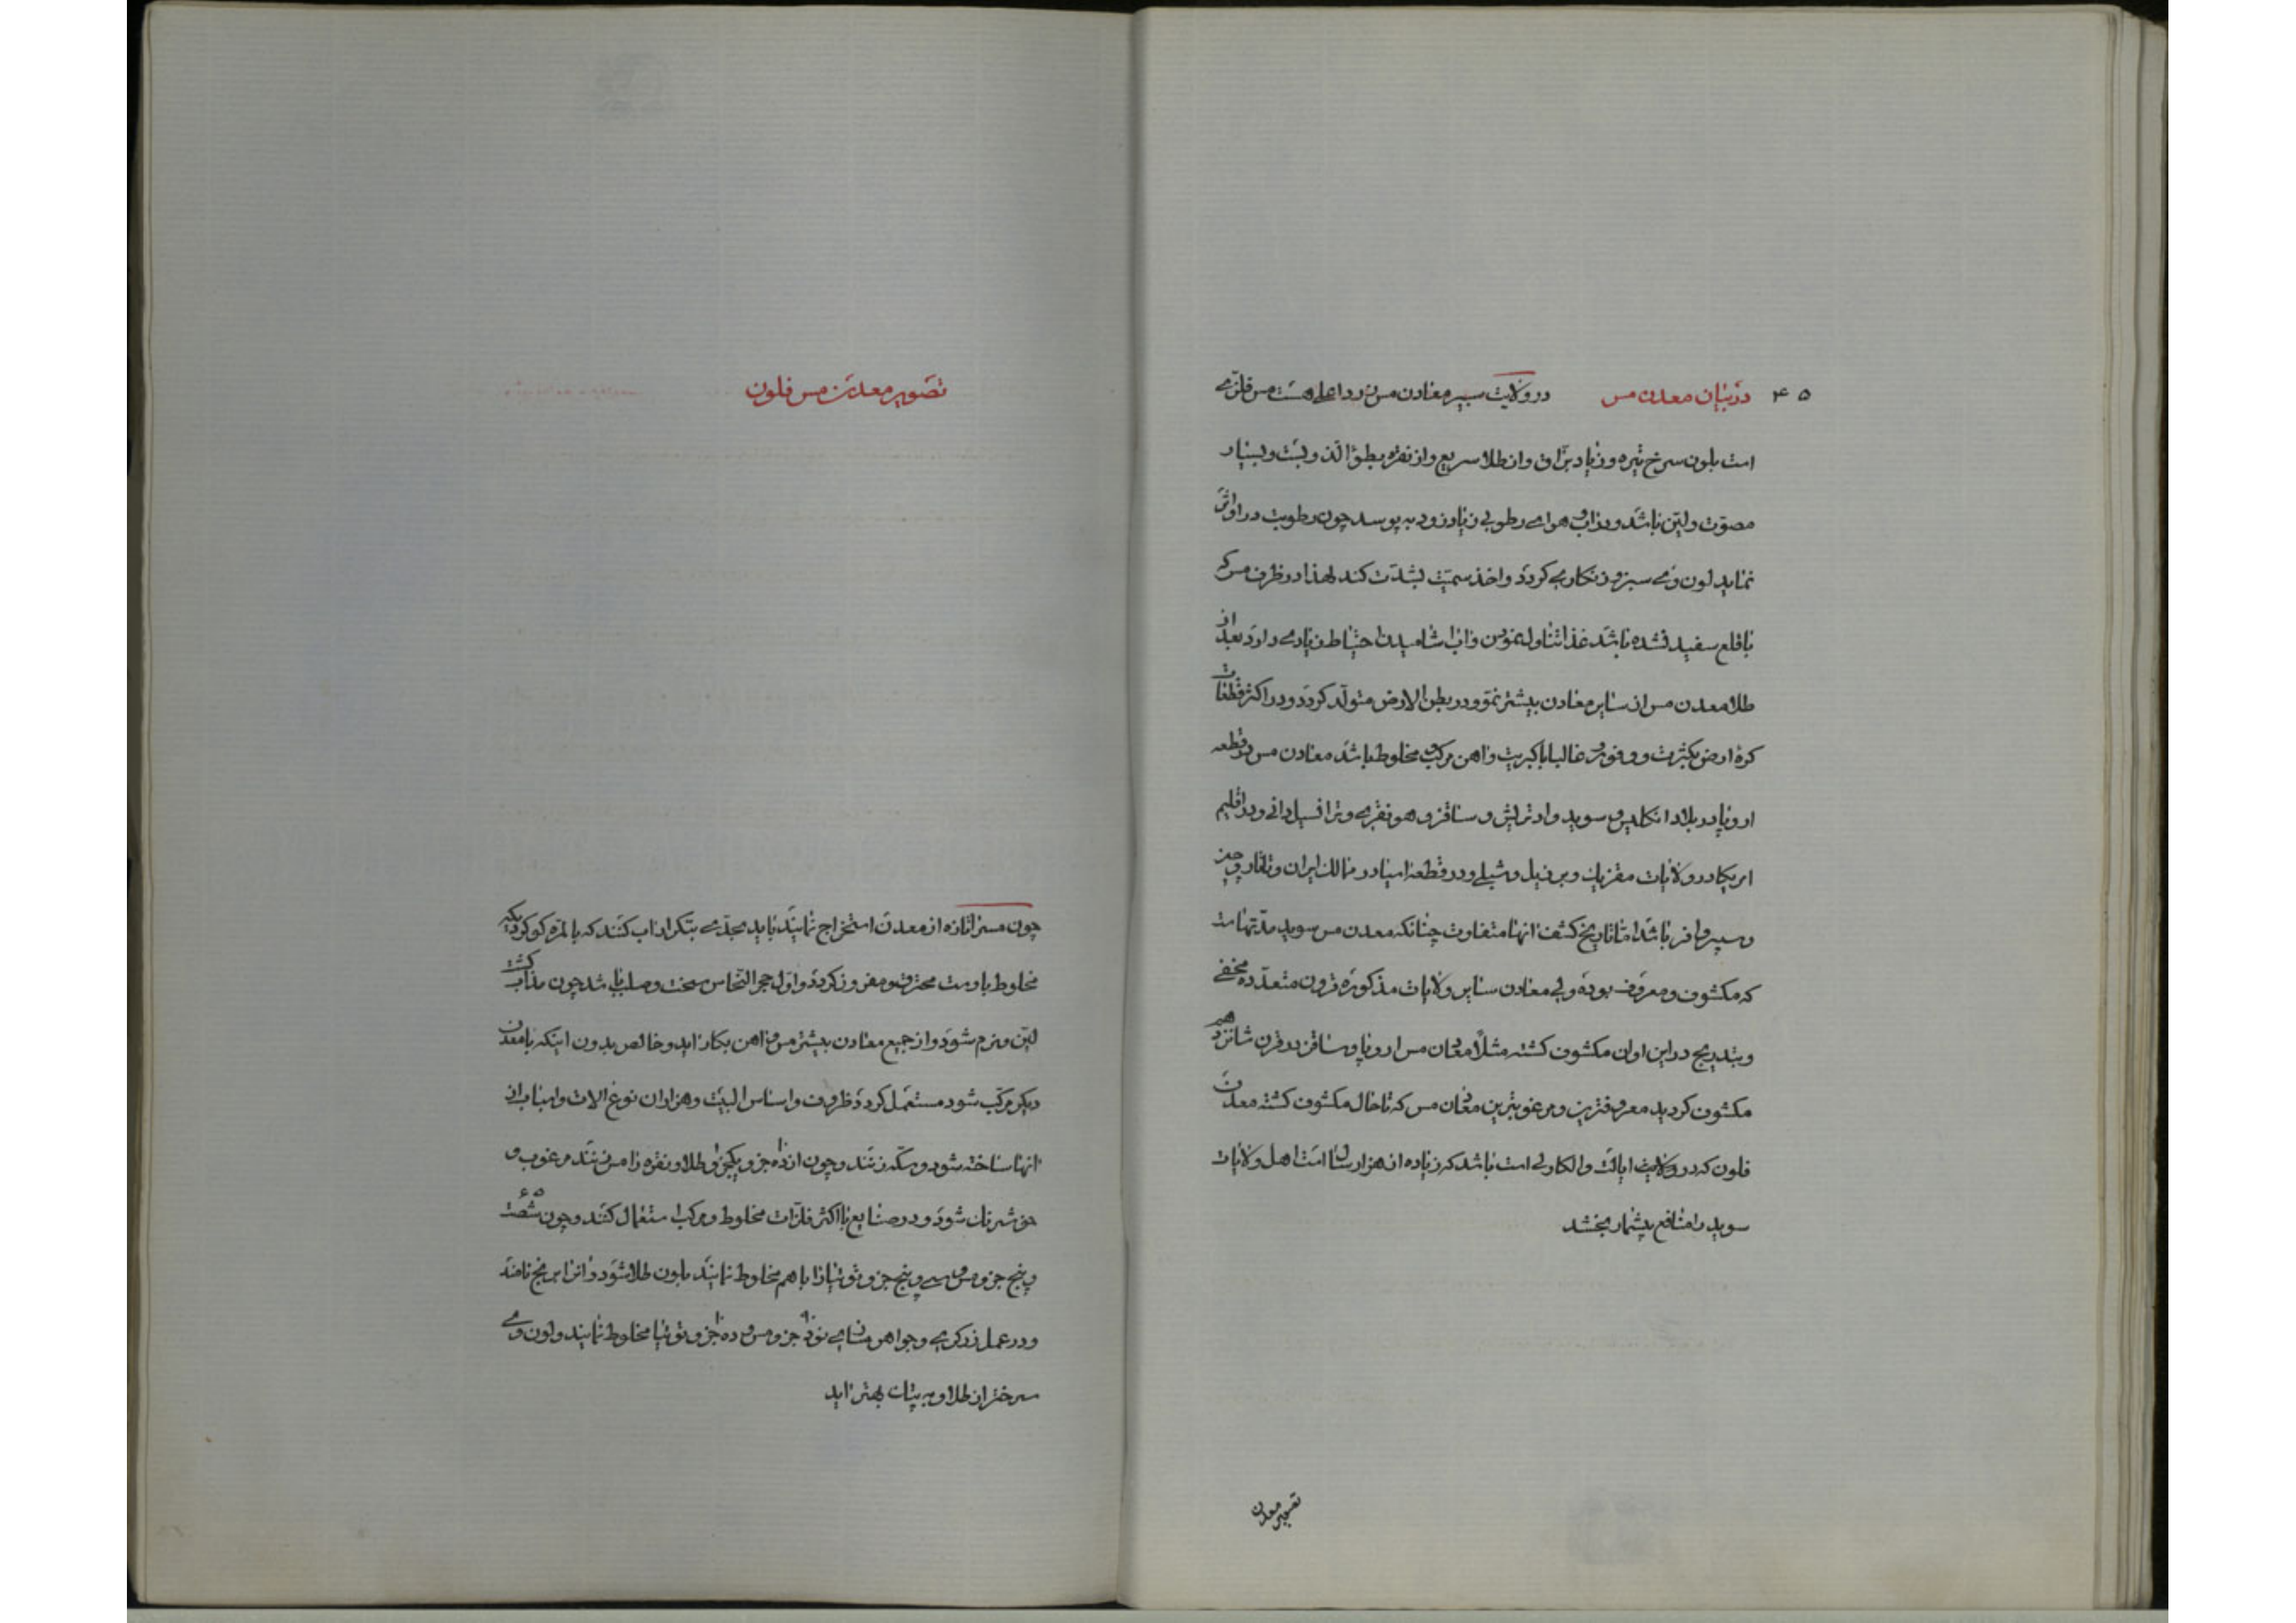 ۴۵ در بیان معدن مس در ولایت سیبیر معادن مس زرد اعلی هست مس فلزی
است بلون سرخ تیره و زیاد برّاق و از طلا سریع و از نقره بطؤ الذوب است و بسیار
مصوّت و لیّن باشد و در آب و هوای رطوبی زیاد زود به پوسد چون رطوبت در او اثر
نماید لون وی سبز و زنکاری کردد و اخذ سمیّت بشدّت کند لهذا در ظرف مس که
با قلع سفید نشده باشد غذا تناول نمودن و آب اشامیدن احتیاط زیاد می دارد بعد از
طلا معدن مس از سایر معادن بیشتر نمّو و در بطن الارض متولّد کردد و در اکثر قطعات
کرهٔ ارض بکثرت و وفور و غالبا با کبریت و اهن مرکب و مخلوط باشد معادن مس در قطعه
اروپا در بلاد انکلیس و سوید و اوتریش و ساقز و هونغری و ترانسیل وانی و در اقلیم
امریکا در ولایات مقزیک و برزیل و شیلی و در قطعه اسیا در ممالک ایران و تاتار و چین
و سیبر وافر باشد اما تاریخ کشف انها متفاوت چنانکه معدن مس سوید مدّتهاست
که مکشوف و معروف بوده ولی معادن سایر ولایات مذکوره قرون متعدّده مخفی
و بتدریج در این اوان مکشوف کشته مثلاً معدن مس اروپا و ساقز در قرن شانزدهم
مکشوف کردید معروفترین و مرغوبترین معدن مس که تاحال مکشوف کشته معدن
فلون که در ولایت ایالت والکارلی است باشد که زیاده از هزار سال است اهل ولایات
سوید را منافع بیشمار بخشد
تصویر معدن
تصویر معدن مس فلون
چون مس را تازه از معدن استخراج نمایند باید بجدّی بتکرار اذاب کنند که بالمرّه کوکردیکه
مخلوط باوست محترق و مفروز کردد و اوّل حجر النحاس سخت و صلب باشد چون مذاب کشت
لیّن و نرم شود و از جمیع معادن بیشتر مس و اهن بکار اید و خالص بدون اینکه با معدن
دیکر مرکّب شود مستعمل کردد ظروف و اساس البیت و هزاران نوع الات و اسباب از
انها ساخته شود و سکّه زنند و چون از ده جزو یکجزو طلا و نقره را مس زنند مرغوب و
خوشرنک شود و در صنایع با اکثر فلزّات مخلوط و مرکب استعمال کنند و چون شصت ۶۵
و پنج جزو مس و سی و پنج جزو توتیا را باهم مخلوط نمایند بلون طلا شود و انرا برنج نامند
و در عمل زرکری و جواهر سازی نود ۹۰ جزو مس و ده ۱۰ جزو توتیا مخلوط نمایند و لون وی
سرختر از طلا و به بیان بهتر اید